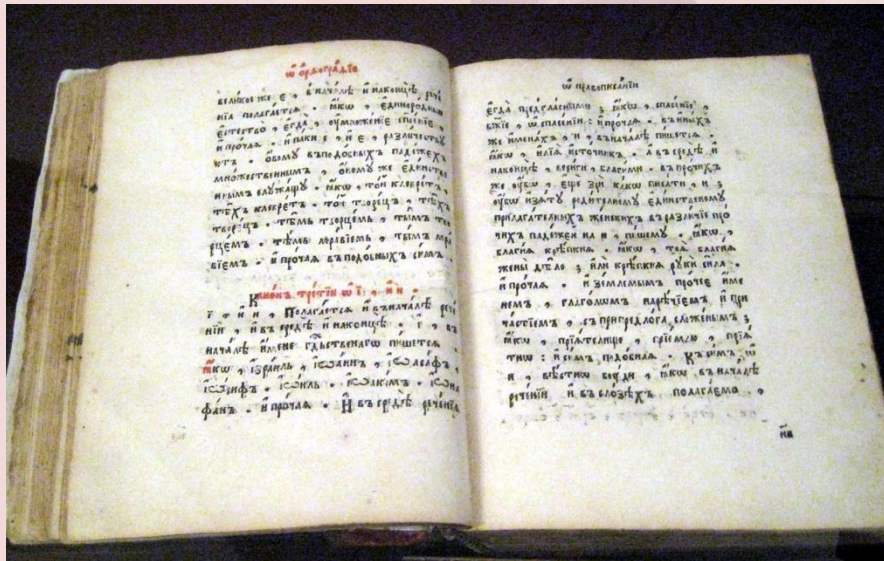 ѿ ѻрѳогра́фїи
вели́кое же є , в нача́лѣ и҆ наконцѣ̀ рече́
нїа полага́етсѧ . ꙗ҆́кѡ , є҆диноро́дный
є҆стество̀ , є҆гда̀ , ᲂу҆множе́нїе
и҆ про́чаѧ . и҆ е , разли́чествꙋ
ютъ . ѻ҆́вомꙋ въ подо́бныхъ паде́жехъ
мно́жественнымъ , ѻ҆́номꙋ же є҆ди́нстве
ннымъ слꙋжа́щꙋ . ꙗ҆́кѡ , то́й клевре́тъ ,
тѣ́хъ клевре́тъ . то́й творе́цъ , тѣ́хъ
творе́цъ . тѣ́мъ творце́мъ , ты́мъ тво
рцем . тѣ́мъ мра́вїемъ , ты́мъ мра́
вїем . и҆ про́чаѧ въ подо́бныхъ си̑мъ .
Кано́нъ тре́тїй ѡ і҆ , и҆ и .
ї , и и , Полага́етсѧ и҆ в нача́лѣ рече́
нїи , и҆ въ средѣ̀ и҆ наконцѣ̀ . ї , въ
нача́лѣ и҆́мене пи́шетсѧ .
ꙗ҆́кѡ , і҆зра́иль , і҆ѡа́ннъ , і҆ѡаса́фъ ,
і҆ѡ́сифъ . і҆ѡи́ль . і҆ѡаки́мъ . і҆ѡна
ѳа́нъ . и҆ про́чаѧ . И҆ въ средѣ̀ рече́нїѧ
ѿ правописа́нїи
є҆гда̀ предгла́сными ; ꙗ҆́кѡ , спасе́нїе ,
бж҃їе , ѡ спасе́нїи : и҆ про́чаѧ . въ и҆ны́хъ
же и҆мена́хъ , и , в нача́лѣ пи́шетсѧ .
ꙗ҆́кѡ , и҆лїа̀ и҆сто́чникъ . а въ средѣ̀ и҆
наконцѣ̀ , вери́ги , благи́ми . въ про́чихъ
же ᲂу҆́бѡ , є҆щѐ зрѝ ка́кѡ писа́ти , и ;
ᲂу҆́бѡ и҆зѧ́тꙋ роди́телномꙋ є҆ди́нственомꙋ
прилага́телныхъ же́нскихъ в разли́чїе про́
чихъ паде́жей на и , пи́шемꙋ . ꙗ҆́кѡ ,
блага́ѧ крѣ́пкїѧ . ꙗ҆́кѡ , тоѧ̀ благи́ѧ
жены̀ дѣ́ло ; и҆лѝ крѣ́пкїѧ рꙋкѝ си́ла .
и҆ про́чаѧ . и҆ про́чее и҆ме
немъ , глаго́лѡмъ нарѣ́чїемъ , и҆ при
ча́стїемъ , съ при предло́га сложе́нымъ ;
ꙗ҆́кѡ , прїѧ́телище , прїе́млю , прїѧ́
тнѡ : и҆ си̑мъ подо́бнаѧ . Къ си̑мъ ѡ
и , вѣ́стнѡ бꙋ́ди , ꙗ҆́кѡ в нача́лѣ
рече́нїй и҆ въ сло́зѣхъ полага́емо ,